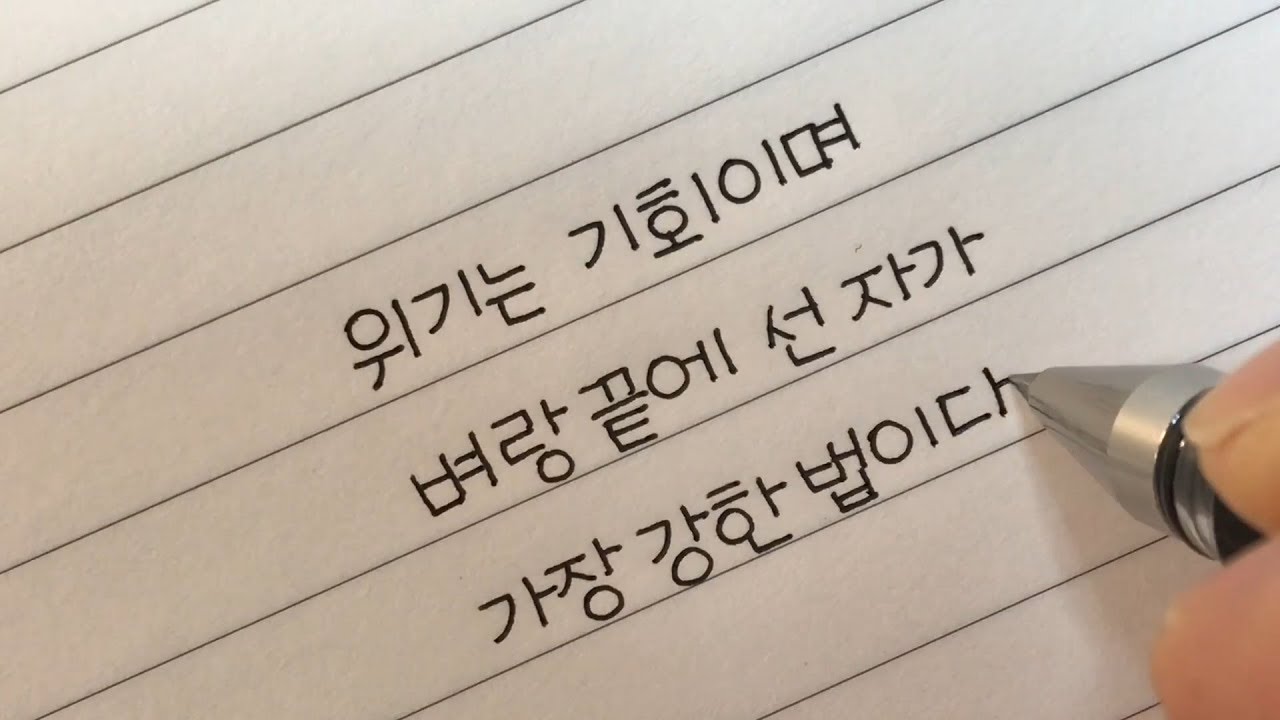 위기는 기회이며
벼랑 끝에 선 자가
가장 강한 법이다